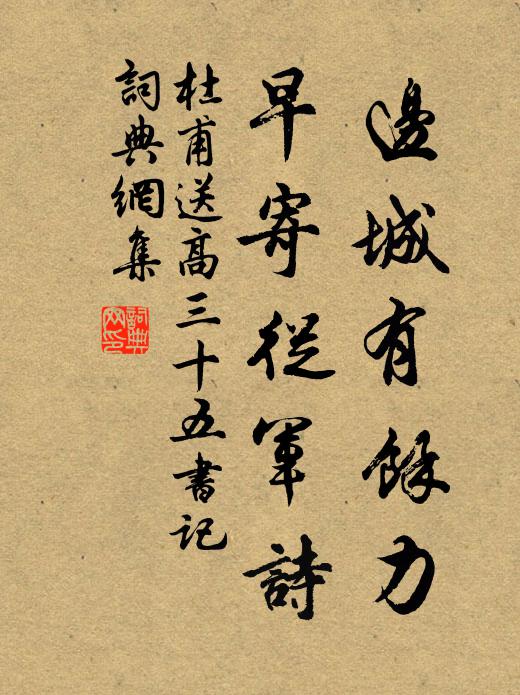 邊城有餘力
早寄從軍詩
杜甫送高三十五書記
詞典網集
詞典网印